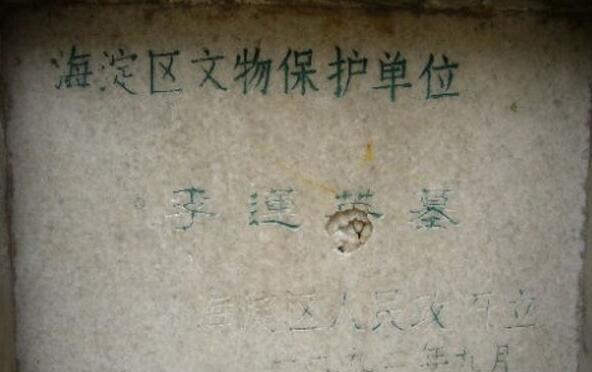 海淀区文物保护单位
李蓮英墓
海淀区人民政府立
年九月